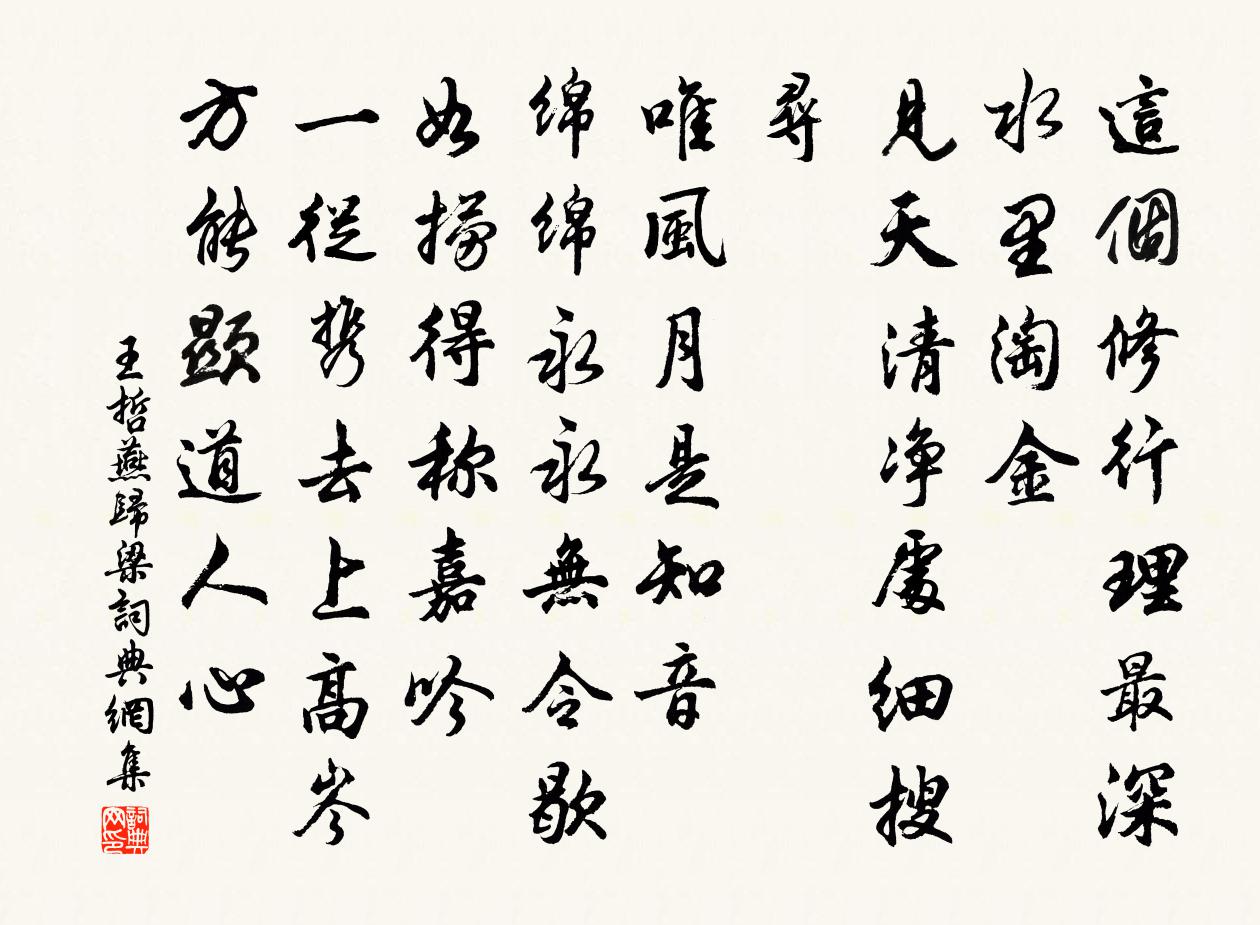 這個修行理最深
水里淘金
見天清净處細搜
尋
唯風月是知音
綿綿永永無令歇
如撈得稱嘉吟
一從携去上高岑
方能顯道人心
王哲燕歸梁詞典網集
詞典網印